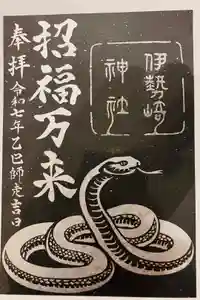 伊勢崎
神社
招福万来
奉拝
令和七年乙巳師走吉日